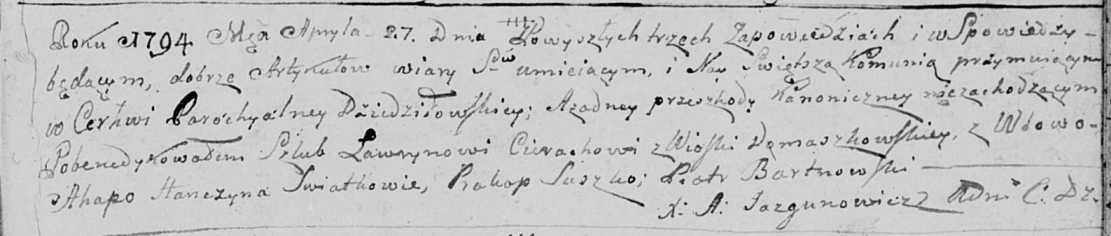 Roku 1794 Mca Apryla 27. Dnia Powyszłych trzech Zapowiedziach i w Spowiedzy-
będącym, dobrze Artykułow wiary Sw umieiącym, i Nay Swiętszą Komunią przymuiącym
w Cerkwi Parochyalney Dziedziłowskiey; Azadney przeszkody Kanoniczney niezachodzącym
Pobenedykowałem Szlub Ławrynowi Cierachowi z Wioski Domaszkowskiey, z Wdowo-
Ahapo Hanczyna Swiatkowie, Prakop Suszko; Piotr Bartnowski
X: A: Jazgunowicz Adm: C: Dz.